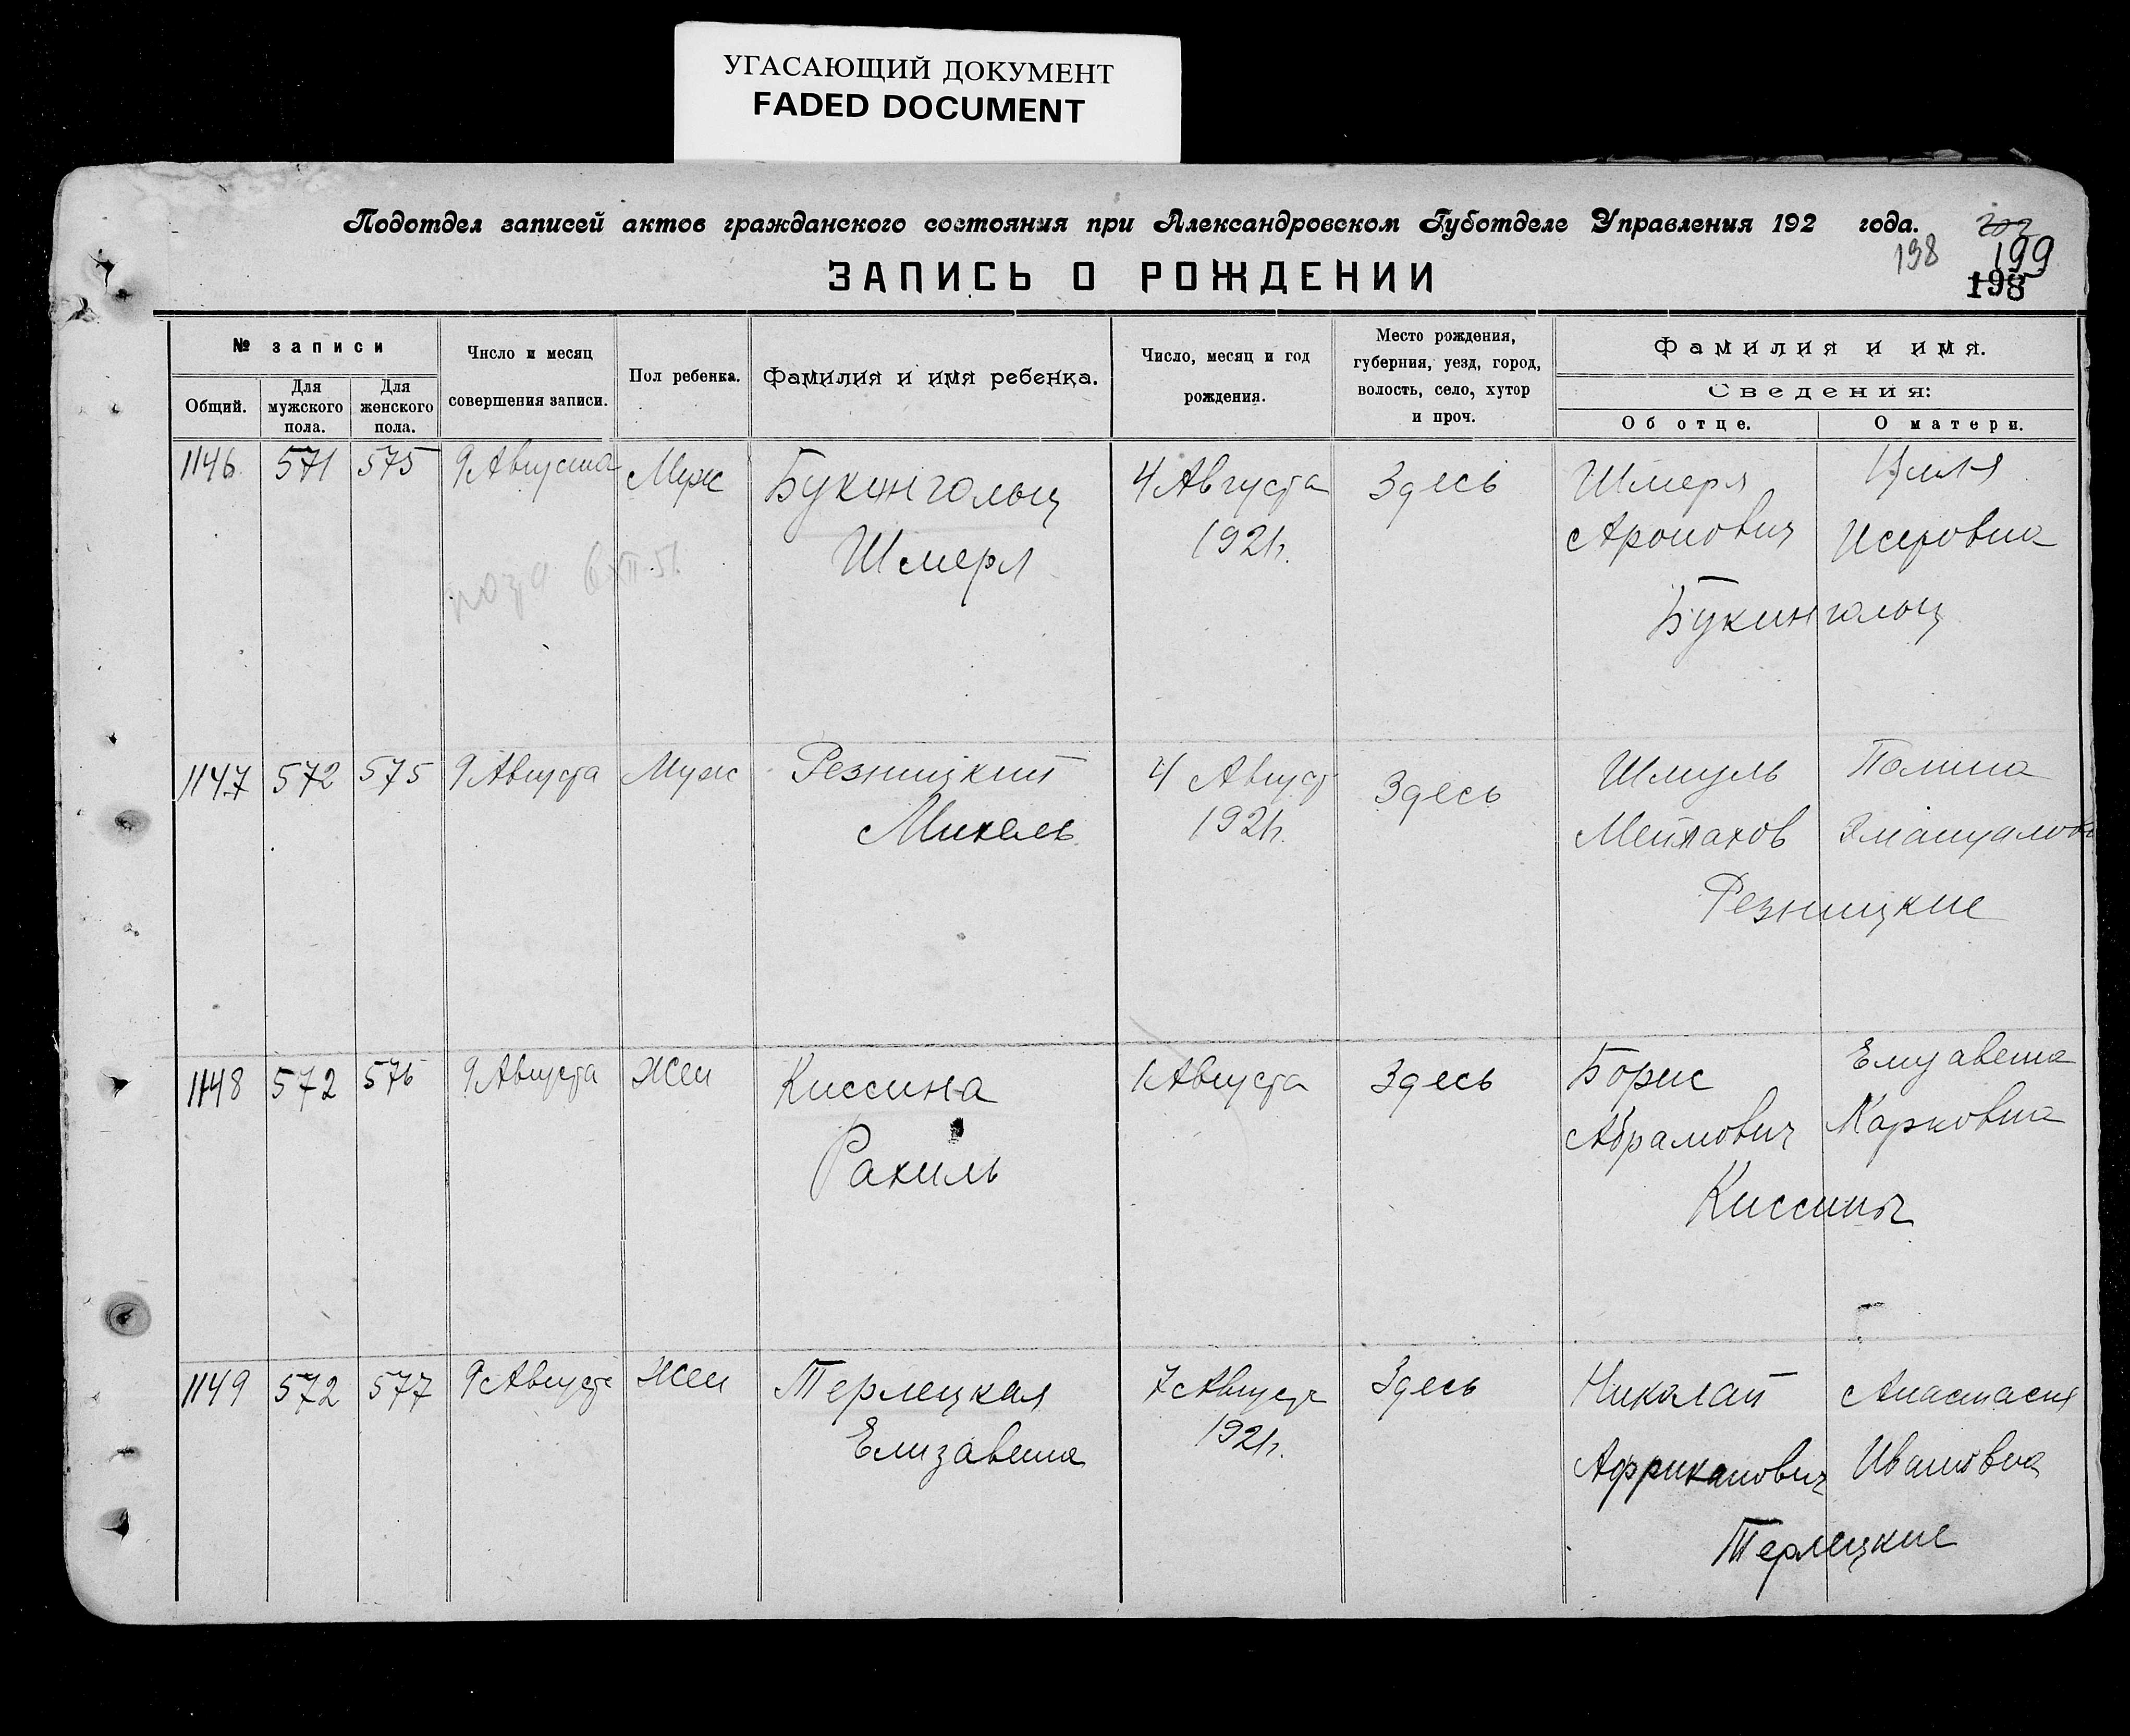 УГАСАЮЩИЙ ДОКУМЕНТ
FADED DOCUMENT
Подотдел записей актов гражданского состояния при Александровском Губотделе Управления 192 года.
198
199
198
ЗАПИСЬ О РОЖДЕНИИ
№ записи
Общий.
Для мужского пола.
Для женского пола.
Число и месяц
совершения записи.
Пол ребенка.
Фамилия и имя ребенка.
Число, месяц и год
рождения.
Место рождения,
губерния, уезд, город,
волость, село, хутор
и проч.
Фамилия и имя.
Сведения:
Об отце.
О матери.
1146 571 575 9 Августа Муж Букингольц 4 Августа Здесь Шмерл Циля
Шмерл 1921г. Аронович Исеровна
Букингольц
1147 572 575 9 Августа Муж Резницкий 4 Август Здесь Шмуль Полина
Михель 1921г. Мейлахов
Резницкие
1148 572 576 9 Августа Жен Киссина 1 Августа Здесь Борис Елизавета
Рахиль Абрамович Марковна
Киссины
1149 572 577 9 Августа Жен Терлецкая 7 Августа Здесь Николай Анастасия
Елизавета 1921г. Африканович Ивановна
Терлецкие